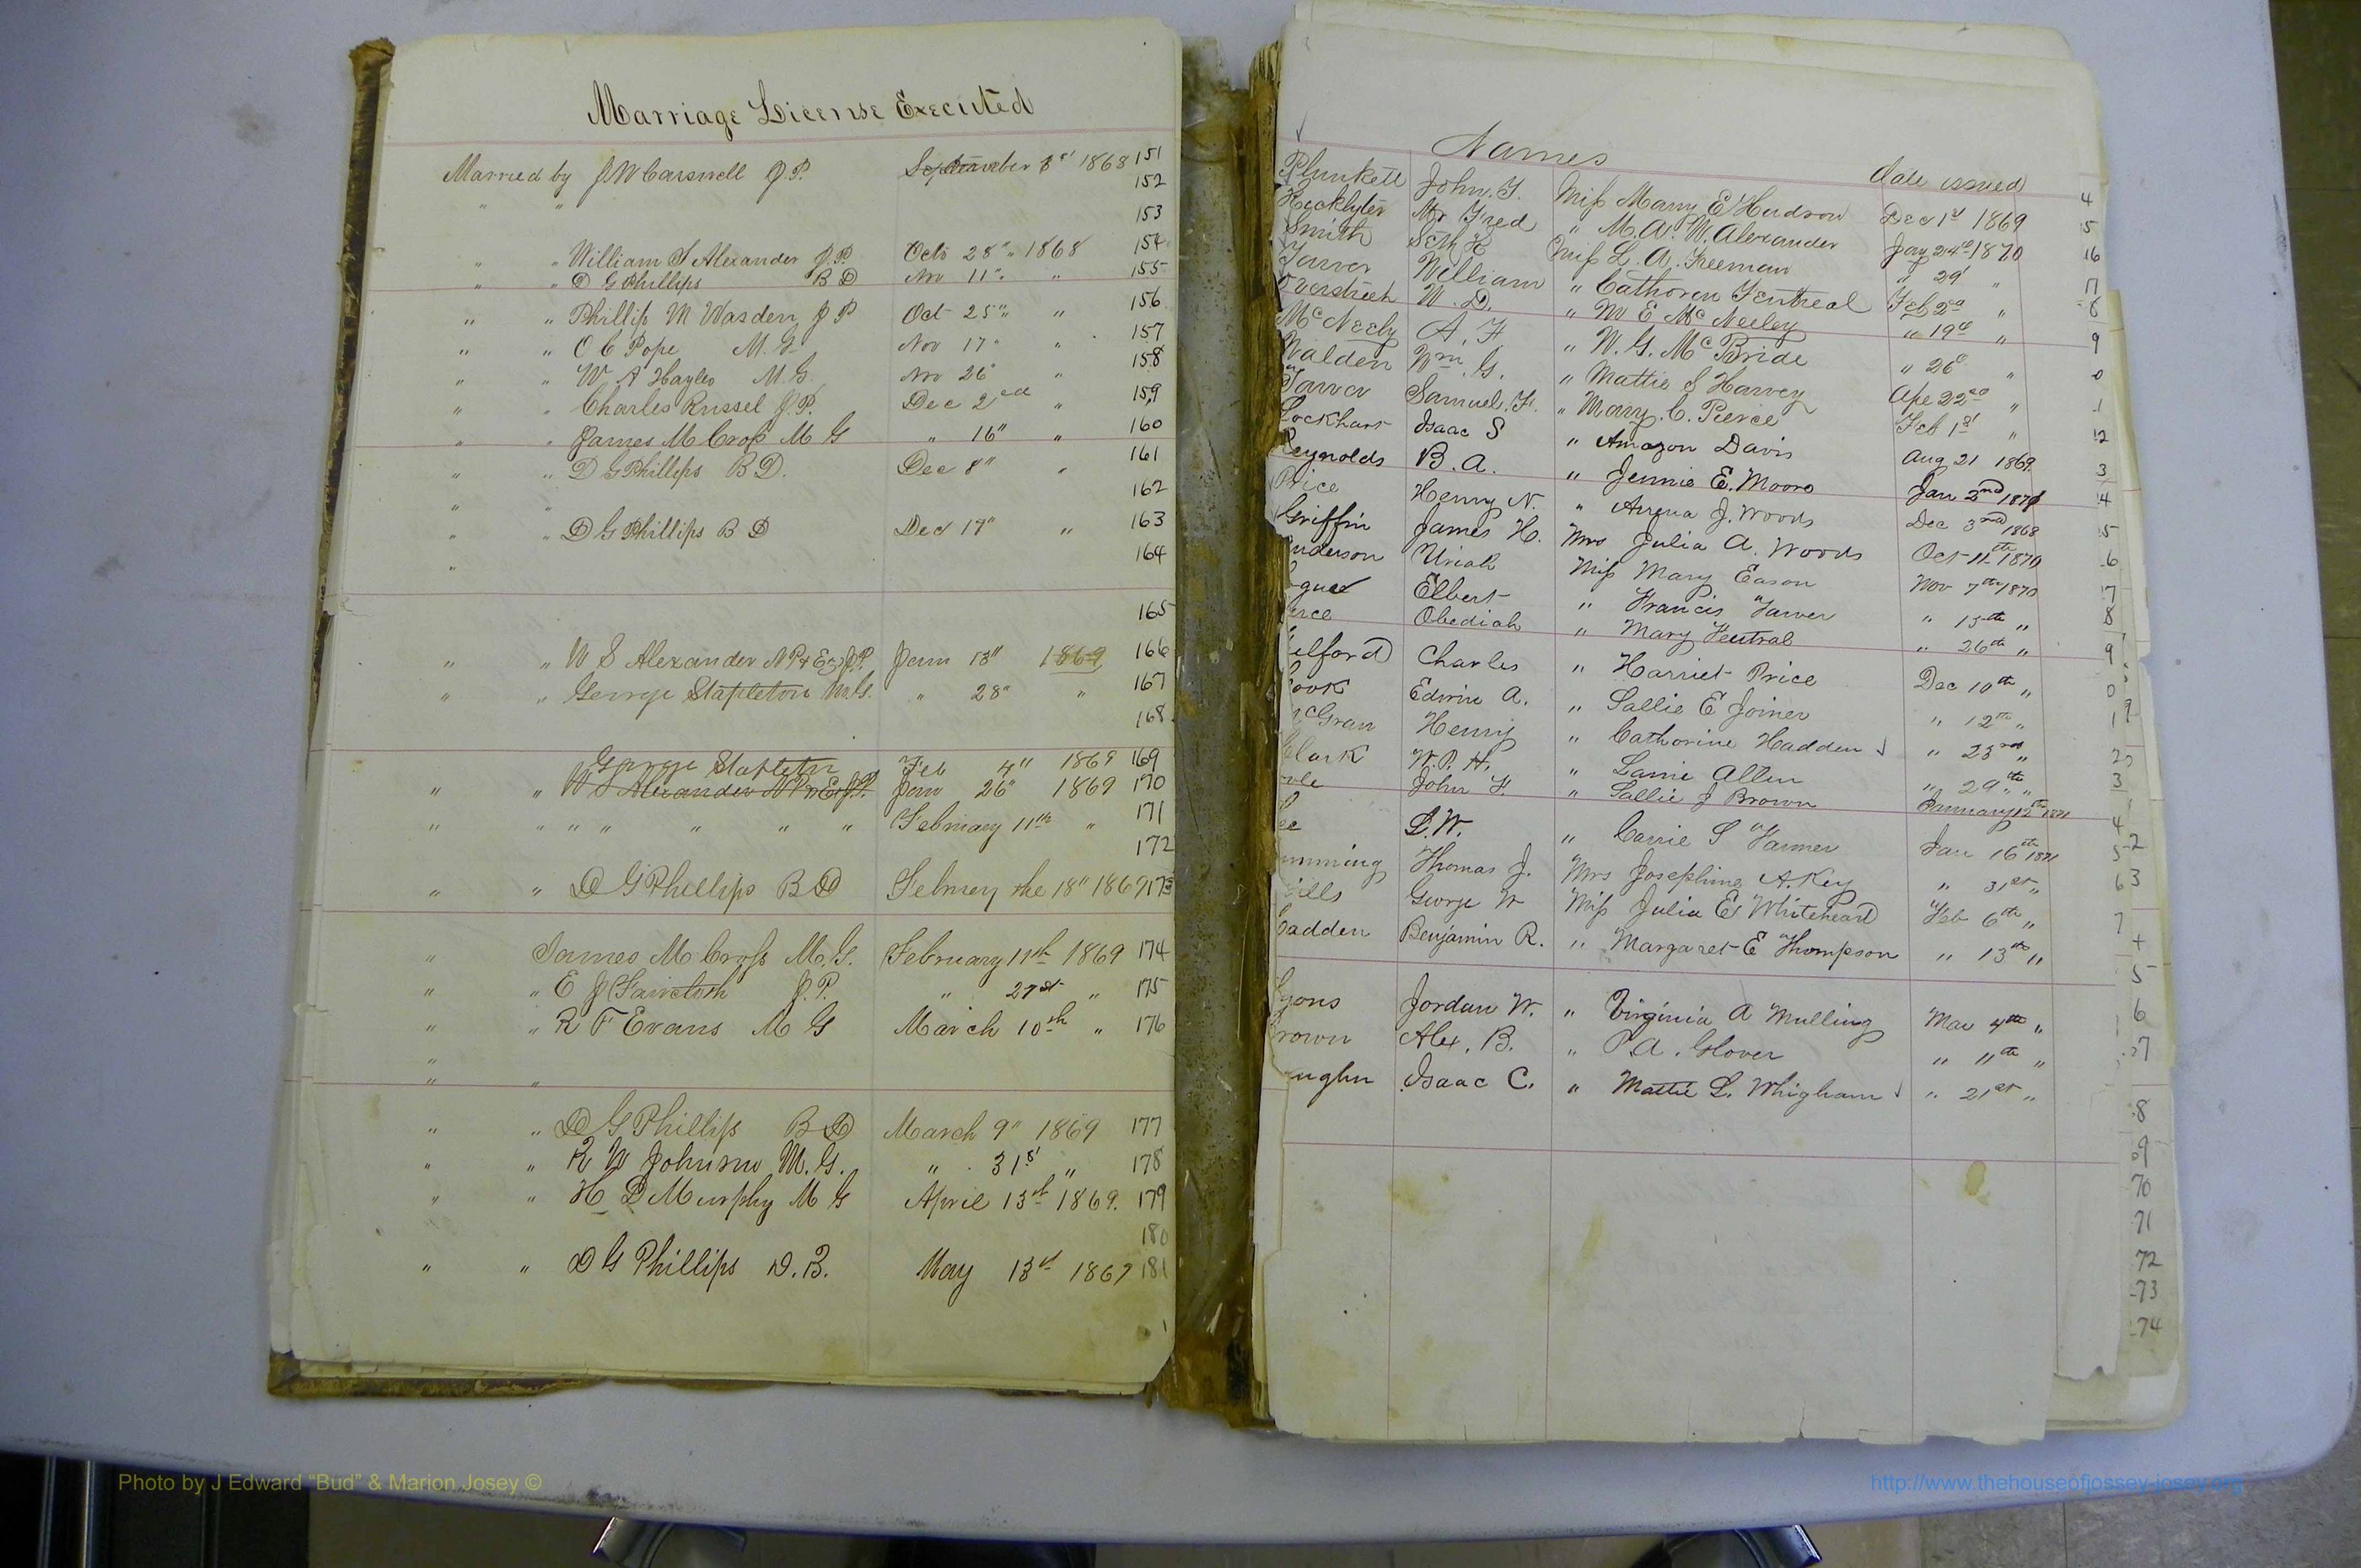 Marriage License Executed
Married by J W Carswell J. P. September 3rd 1868 151
" " 152
153
" " William S Alexander J. P. Octo 28" " 1868 154
" " D G Phillips B D Nov 11" " 155
" " Phillip M Wasden J P Oct 25" " 156
" " O C Pope M. G. Nov 17" " 157
" " W A Hayles M. G. Nov 26" " 158
" " Charles Russel J. P. Dec 2ed " 159
" " James M Cross M G " 16" " 160
" " D G Phillips B D. Dec 8" " 161
" " 162
" " D G Phillips B D Dec 17" " 163
" 164
165
" " W S Alexander N P & Ex J. P. Jan 13" 1869 166
" " George Stapleton M. G. " 28" " 167
168
George Stapleton Feb 4" 1869 169
" " W S Alexander N P & Ex J. P. Jan 26" 1869 170
" " " " " " " February 11th " 171
172
" " D G Phillips B D Februey the 18" 1869 173
" James M Cross M. G. February 11th 1869 174
" " E J Faircloth J. P. " 21st " 175
" " R F Evans M G March 10th " 176
"
" "
" " D G Phillips B D March 9" 1869 177
" " R W Johnson M. G. " 31st " 178
" " H D Murphy M G April 13th 1869. 179
180
" " D G Phillips D. B. May 13th 1869 181
Names Date issued
Plunkett John. T. Miss Mary E Hudson Dec 1st 1869 4
Mr Fred " M. A. M. Alexander Jany 24th 1870 5
Smith Seth H Miss L. A. Freeman " 29' " 16
Tarver William " Cathoren Fentreal Feb 2nd " 7
Overstreet W. D. " M E McNeeley " 19th " 8
McNeely A. F " W. G. McBride " 26th " 9
Walden Wm. G. " Mattie S Harvey Ape 22nd " 0
Tarver Samuel. F. " Mary. C. Pierce Feb 1st " 1
Lockhart Isaac S " Amazon Davis Aug 21 1869. 12
Reynolds B. A. " Jennie E. Moore Jan 2nd 1871 3
Price Henry N. " Arrena J. Woods Dec 3rd 1868 4
Griffin James H. Mrs Julia A. Woods Oct 11th 1870 5
nderson Uriah Miss Mary Eason Nov 7th 1870 6
gue Elbert " Francis Tarver " 15th " 7
erce Obediah " Mary Fentral " 26th " 8
ulford Charles " Harriet Price Dec 10th " 9
ook Edwin A. " Sallie E Joiner " 12th " 0
McGran Henry " Cathorine Hadden " 23rd " 1
Clark W. P. H. " Lanie Allen " 29th "
ole John F. " Sallie J Brown January 12th 1871 3
ee L. W. " Carrie S Farmer Jan 16th 1871 4
umming Thomas J. Mrs Josephine A. Key " 31st " 5
ills George W Miss Julia E Whitehead Feb 6th " 6
Gadden Benjamin R. " Margaret E Thompson " 13th " 7
Lyons Jordan W. " Virginia A Mulling Mar 4th "
Brown Alex. B. " P. A. Glover " 11th "
aughn Isaac C. " Mattie L. Whigham " 21st "
9
2
3
4
5
6
7
8
9
70
71
72
73
74
Photo by J Edward “Bud” & Marion Josey ©
http://www.thehouseofjossey-josey.org